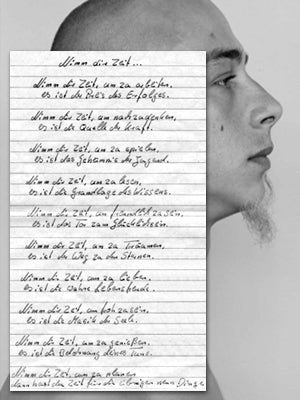 Nimm dir Zeit...
Nimm dir Zeit, um zu arbeiten,
es ist der Preis des Erfolges.
Nimm dir Zeit, um nachzudenken,
es ist die Quelle der Kraft.
Nimm dir Zeit, um zu spielen,
es ist das Geheimnis der Jugend.
Nimm dir Zeit, um zu lesen,
es ist die Grundlage des Wissens.
Nimm dir Zeit, um freundlich zu sein,
es ist das Tor zum Glücklichsein.
Nimm dir Zeit, um zu Träumen,
es ist der Weg zu den Sternen.
Nimm dir Zeit, um zu lieben,
es ist die wahre Lebensfreude.
Nimm dir Zeit, um froh zu sein,
es ist die Musik der Seele.
Nimm dir Zeit, um zu genießen,
es ist die Belohnung deines Tuns.
Nimm dir Zeit, um zu planen
dann hast du Zeit für die übrigen neun Dinge